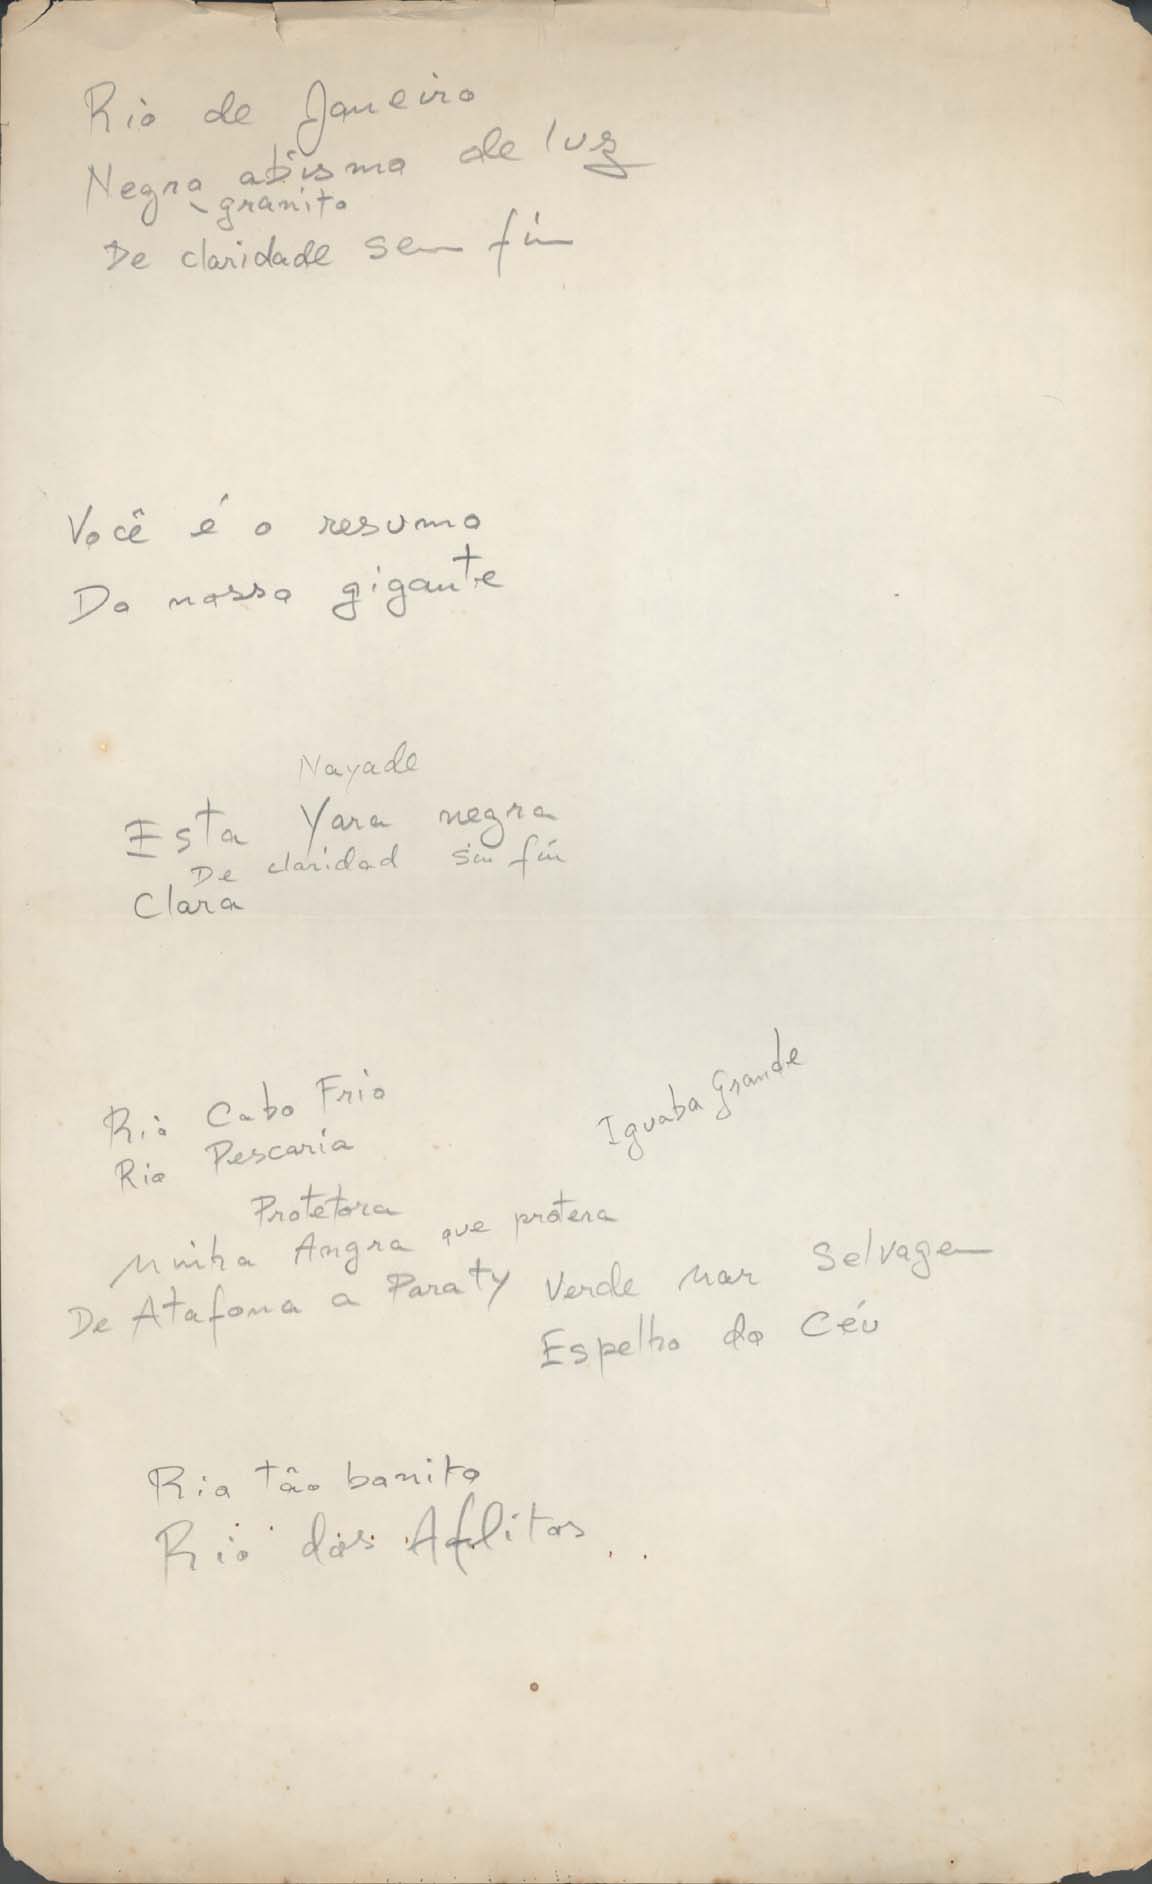 Rio de Janeiro
Negro abismo de luz
granito
De claridade sem fim
Você é o resumo
Do nosso gigante
Nayade
Esta Yara negra
De claridad sin fin
Clara
Rio Cabo Frio
Iguaba Grande
Rio Pescaria
Protetora
Minha Angra que protera
De Atafona a Paraty Verde mar Selvagem
Espelho do Céu
Rio tão bonito
Rio dos Aflitos